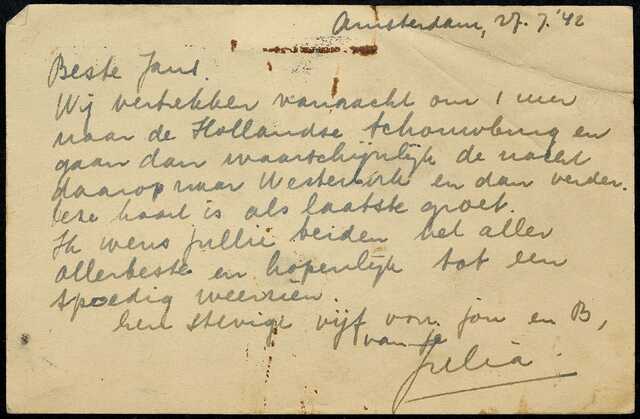 Amsterdam, 27. 7. '42
Beste Jans.
Wij vertrekken vannacht om 1 uur
naar de Hollandse Schouwburg en
gaan dan waarschijnlijk de nacht
daarop naar Westerbork en dan verder.
Deze kaart is als laatste groet.
Ik wens jullie beiden het aller
allerbeste en hopenlijk tot een
spoedig weerzien.
Een stevige vijf voor jou en B,
van je
Julia.